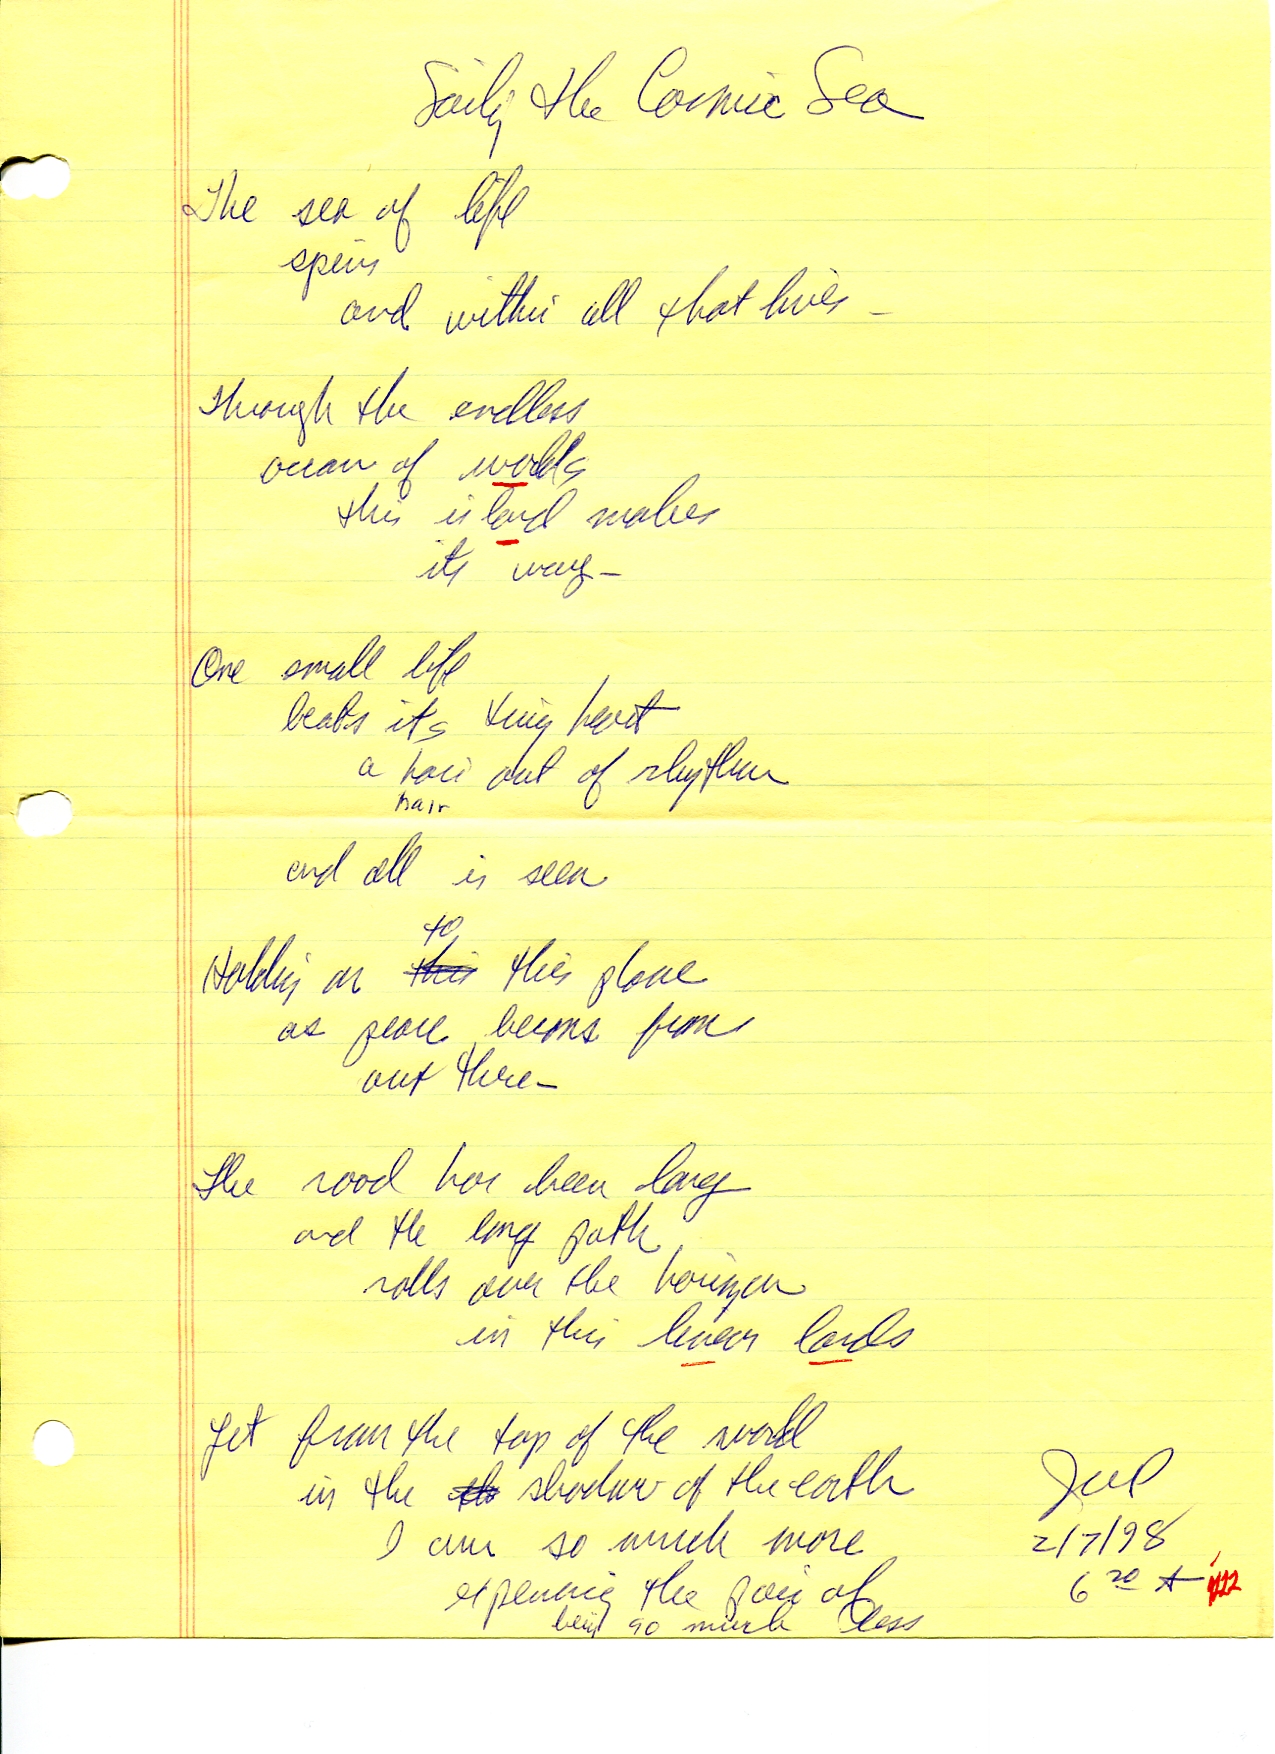 Sailing the Cosmic Sea
The sea of life
spins
and within all that lives –
Through the endless
ocean of worlds
this island makes
its way –
One small life
beats its tiny heart
a hair out of rhythm
hair
and all is seen
to
Holding on this this place
as peace beams from
out there –
The road has been long
and the long path
rolls over the horizon
in this linear lands
Yet from the top of the world
in the shadow of the earth
I am so much more
the pain of
being so much less
2/7/98
6 20 A